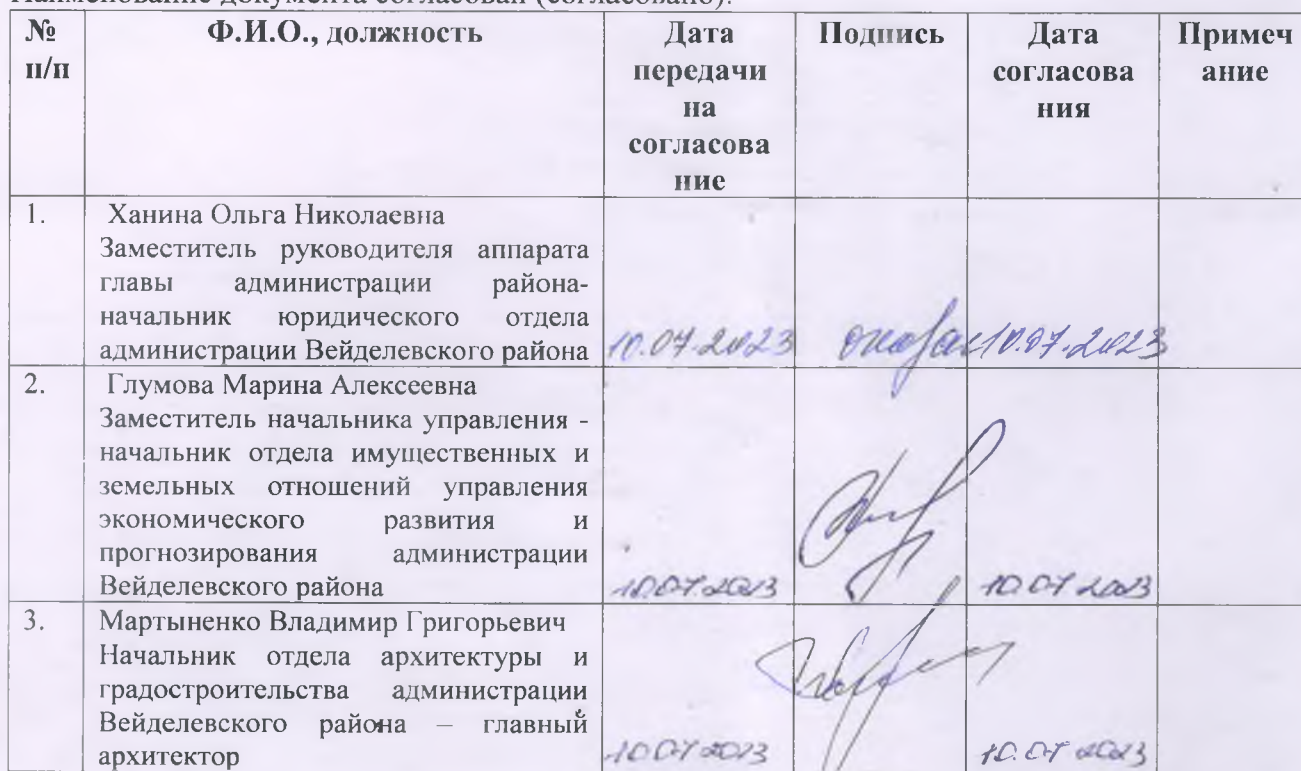 Наименование документа согласован (согласовано):
№ Ф.И.О., должность Дата Подпись Дата Примеч
п/п передачи согласова ание
на ния
согласова
ние
1. Ханина Ольга Николаевна
Заместитель руководителя аппарата
главы администрации района-
начальник юридического отдела
администрации Вейделевского района 10.07.2023 10.07.2023
2. Глумова Марина Алексеевна
Заместитель начальника управления -
начальник отдела имущественных и
земельных отношений управления
экономического развития и
прогнозирования администрации
Вейделевского района 10.07.2023 10.07.2023
3. Мартыненко Владимир Григорьевич
Начальник отдела архитектуры и
градостроительства администрации
Вейделевского района – главный
архитектор 10.07.2023 10.07.2023